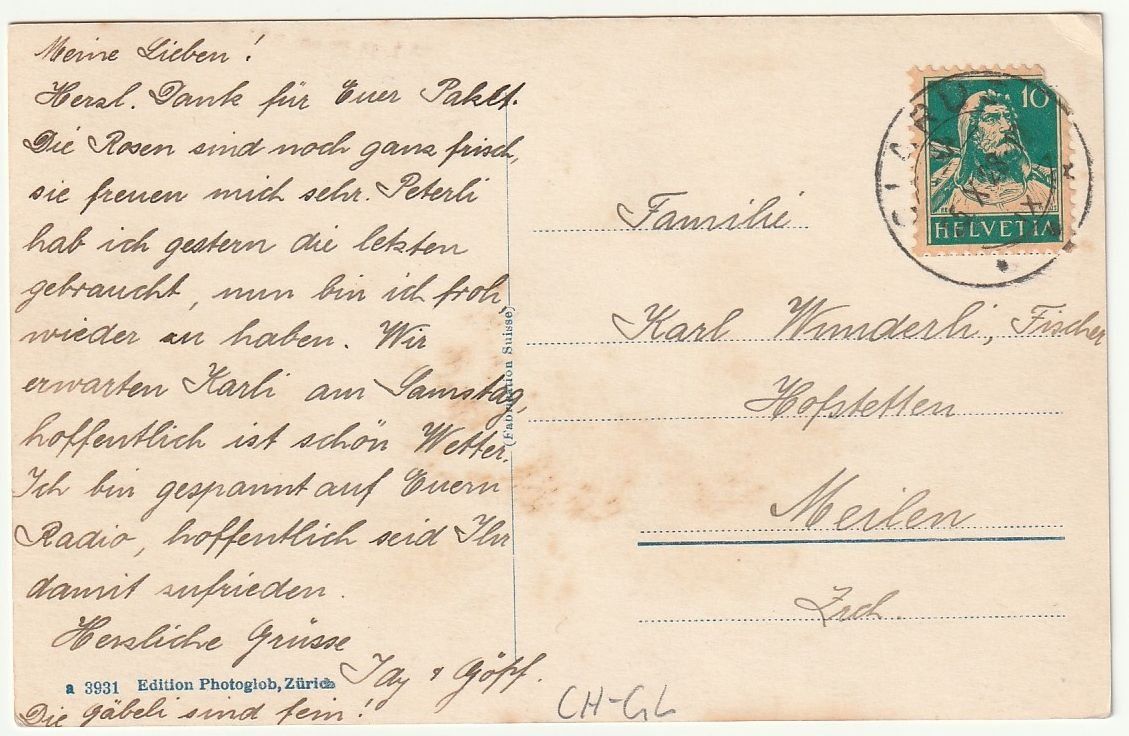 Meine Lieben!
Herzl. Dank für Euer Paklt.
Die Rosen sind noch ganz frisch,
sie freuen mich sehr. Peterli
hab ich gestern die letzten
gebraucht, nun bin ich froh,
wieder zu haben. Wir
erwarten Karli am Samstag,
hoffentlich ist schön Wetter.
Ich bin gespannt auf Euern
Radio, hoffentlich seid Ihr
damit zufrieden.
Herzliche Grüsse
& Göpf.
a 3931 Edition Photoglob, Zürich
Die Gäbeli sind fein!
(Fabrication Suisse)
GLARUS
10
HELVETIA
Familie
Karl Wunderli, Fischer
Hofstetten
Meilen
Zrch.
CH-GL